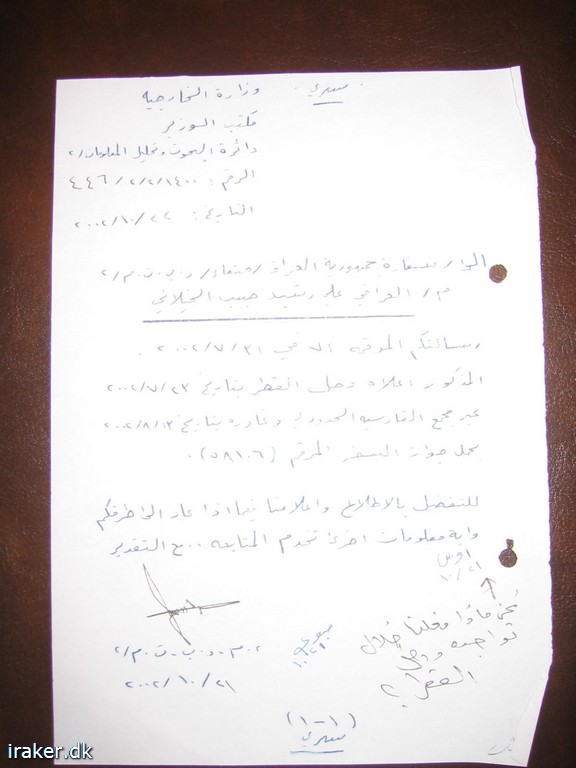 سري
وزارة الخارجية
مكتب الوزير
دائرة البحوث وتحليل المعلومات/٢
الرقم: ٤٤٦/٢/٢/١٤٠٠
التاريخ: ٢٠٠٢/١٠/٢٢
الى/ سفارة جمهورية العراق/صنعاء/ د.ب.ت.م/٢
م/ العراقي علي رشيد حبيب الخيلاني
رسالتكم المرقمة ٧١ في ٢٠٠٢/٧/٣١ .
المذكور اعلاه دخل القطر بتاريخ ٢٠٠٢/٧/٢٣
عبر مجمع القادسية الحدودي وغادره بتاريخ ٢٠٠٢/٨/١٣
يحمل جواز السفر المرقم (٥٨١٠٦).
للتفضل بالاطلاع واعلامنا فيما اذا عاد الى طرفكم
واية معلومات اخرى تخدم المتابعة .. مع التقدير
١٠/٢١
نحن ماذا فعلنا خلال
تواجده
م.د.ب.ت.م/٢
٢٠٠٢/١٠/٢١
١٠/٢١
(١-١)
سري
iraker.dk